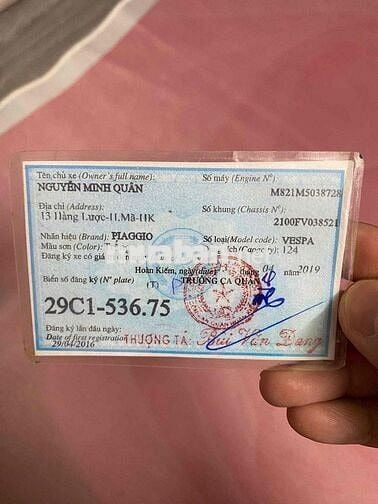 Tên chủ xe (Owner's full name):
NGUYỄN MINH QUÂN
Số máy (Engine Nº):
M821M5038728
Địa chỉ (Address):
13 Hàng Lược-H.Mã-HK
Số khung (Chassis Nº):
2100FV038521
Nhãn hiệu (Brand): PIAGGIO
Số loại(Model code): VESPA
Màu sơn (Color):
(Capacity): 124
Đăng ký xe có giá
Hoàn Kiếm, ngày(date) tháng 04 năm 2019
Biển số đăng ký (Nº plate)
TRƯỞNG CA QUẬN
(T)
29C1-536.75
Đăng ký lần đầu ngày:
Date of first registration
29/04/2016
THƯỢNG TÁ: Bùi Văn